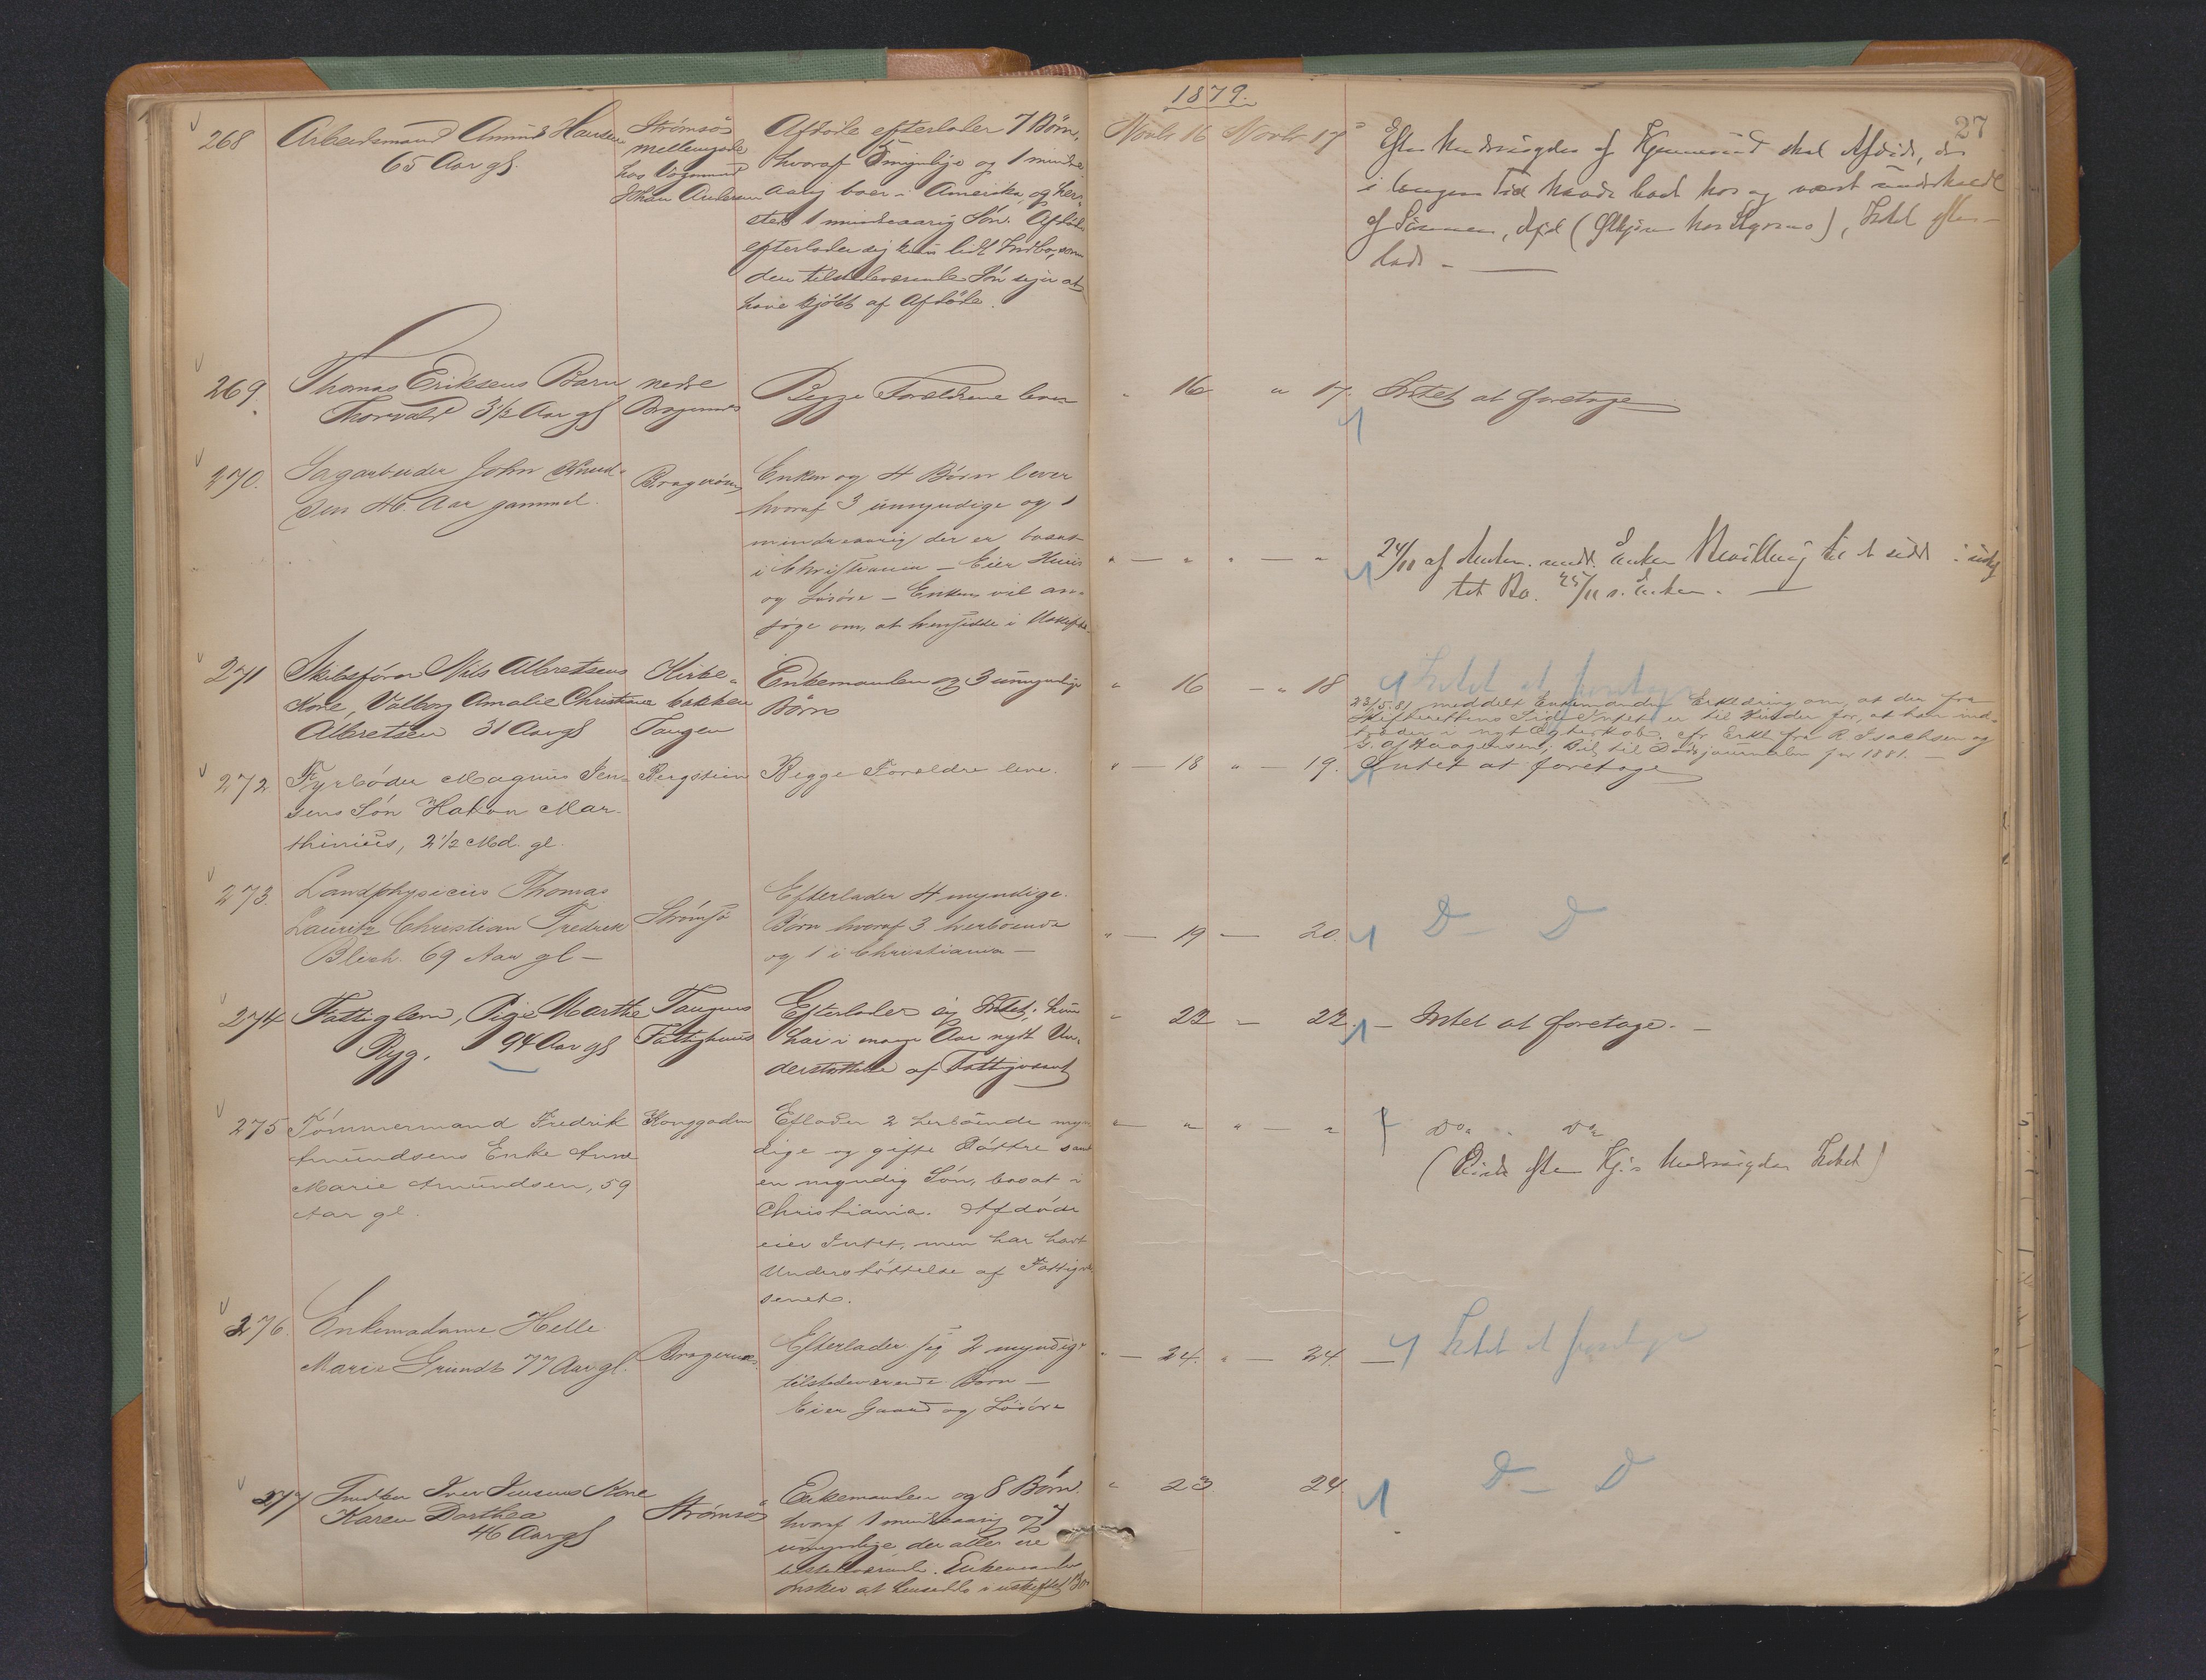 1879.
27
268 Arbeidsmand Amund Hansen
65 Aar gl
Strømsø
mellemgade
hos Vognmand
Johan Andersen
Afdøde efterlader 7 Børn,
hvoraf 5 myndige og 1 mindre
aarig boer i Amerika, og her
sted 1 mindreaarig Søn. Afdøde
efterlader sig kun lidt Indbo, som
den tilstedeværende Søn siger at
have kjøbt af Afdøde.
Novbr 16 Novbr. 17
Efter Underrsøgelse af skal Afdøde, der
i længere Tid havde boet hos og været underholdt
af Sønnen, Intet efter-
ladt
269. Thomas Eriksens Barn
Thorvald 3 1/2 Aar gl
nedre
Bragernæs
Begge Forældrene lever
" 16 " 17. Intet at foretage
270. Sagarbeider John Knud-
sen 46 Aar gammel.
Bragernæs
Enken og 4 Børn lever
hvoraf 3 umyndige og 1
mindreaarig der er bosat
i Christiania – Eier Huus
og Løsøre – Enken vil an-
søge om, at hensidde i Uskiftet
" — " " — "
24/11 af Enken Bevilling til at sidde i uskif
tet Bo. 25/11 s. Enken. —
271 Skibsfører Nils Albretsens
Kone, Valborg Amalie Christiane
Albretsen 31 Aar gl
Kirke-
bakken
Tangen
Enkemanden og 3 umyndige
Børn
" 16 — " 18
Intet at foretage
23/5.81 meddelt Enkemanden Erklæring om, at der fra
Skifterettens Side Intet er til Hinder for, at han ind-
træder i nyt Ægteskab. cfr. Erkl. fra R Isachsen og
Haagensen; Bil. til Dødsjournalen for 1881. —
272 Fyrbøder Magnus Jen-
sens Søn Hakon Mar-
thinius, 2 1/2 Md. gl.
Bergstien
Begge Forældre leve.
" — 18 " — 19. Intet at foretage
273. Landphysicus Thomas
Lauritz Christian Fredrik
Blich. 69 Aar gl —
Strømsø
Efterlader 4 myndige
Børn hvoraf 3 herboende
og 1 i Christiania —
" — 19 — 20. D — D
274 Fattiglem, Pige Marthe
Ryg, 94 Aar gl
Tangens
Fattighuus
Efterlader sig Intet; hun
har i mange Aar nydt Un-
derstøttelse af Fattigvæsenet
" 22 — 22. — Intet at foretage. —
275 Tømmermand Fredrik
Amundsens Enke Anne
Marie Amundsen, 59
Aar gl.
Konggaden
Eflader 2 herboende myn
dige og gifte Døttre samt
en myndig Søn, bosat i
Christiania. Afdøde
eier Intet, men har havt
Understøttelse af Fattigvæ
senet.
" — " " — " do do
(Eiede efter Undersøgelse Intet)
276. Enkemadame Helle
Marie Grundt 77 Aar gl.
Bragernæs.
Efterlader sig 2 myndige
tilstedeværende Børn —
Eier Gaard og Løsøre
" — 24. " — 24 — Intet at foretage
277 Iver Iversens Kone
Karen Dorthea
46 Aar gl
Strømsø
Enkemanden og 8 Børn.
hvoraf 1 mindreaarig og 7
umyndige der alle ere
tilstedeværende. Enkemanden
ønsker at hensidde i uskiftet Bo
" 23 24 D — D